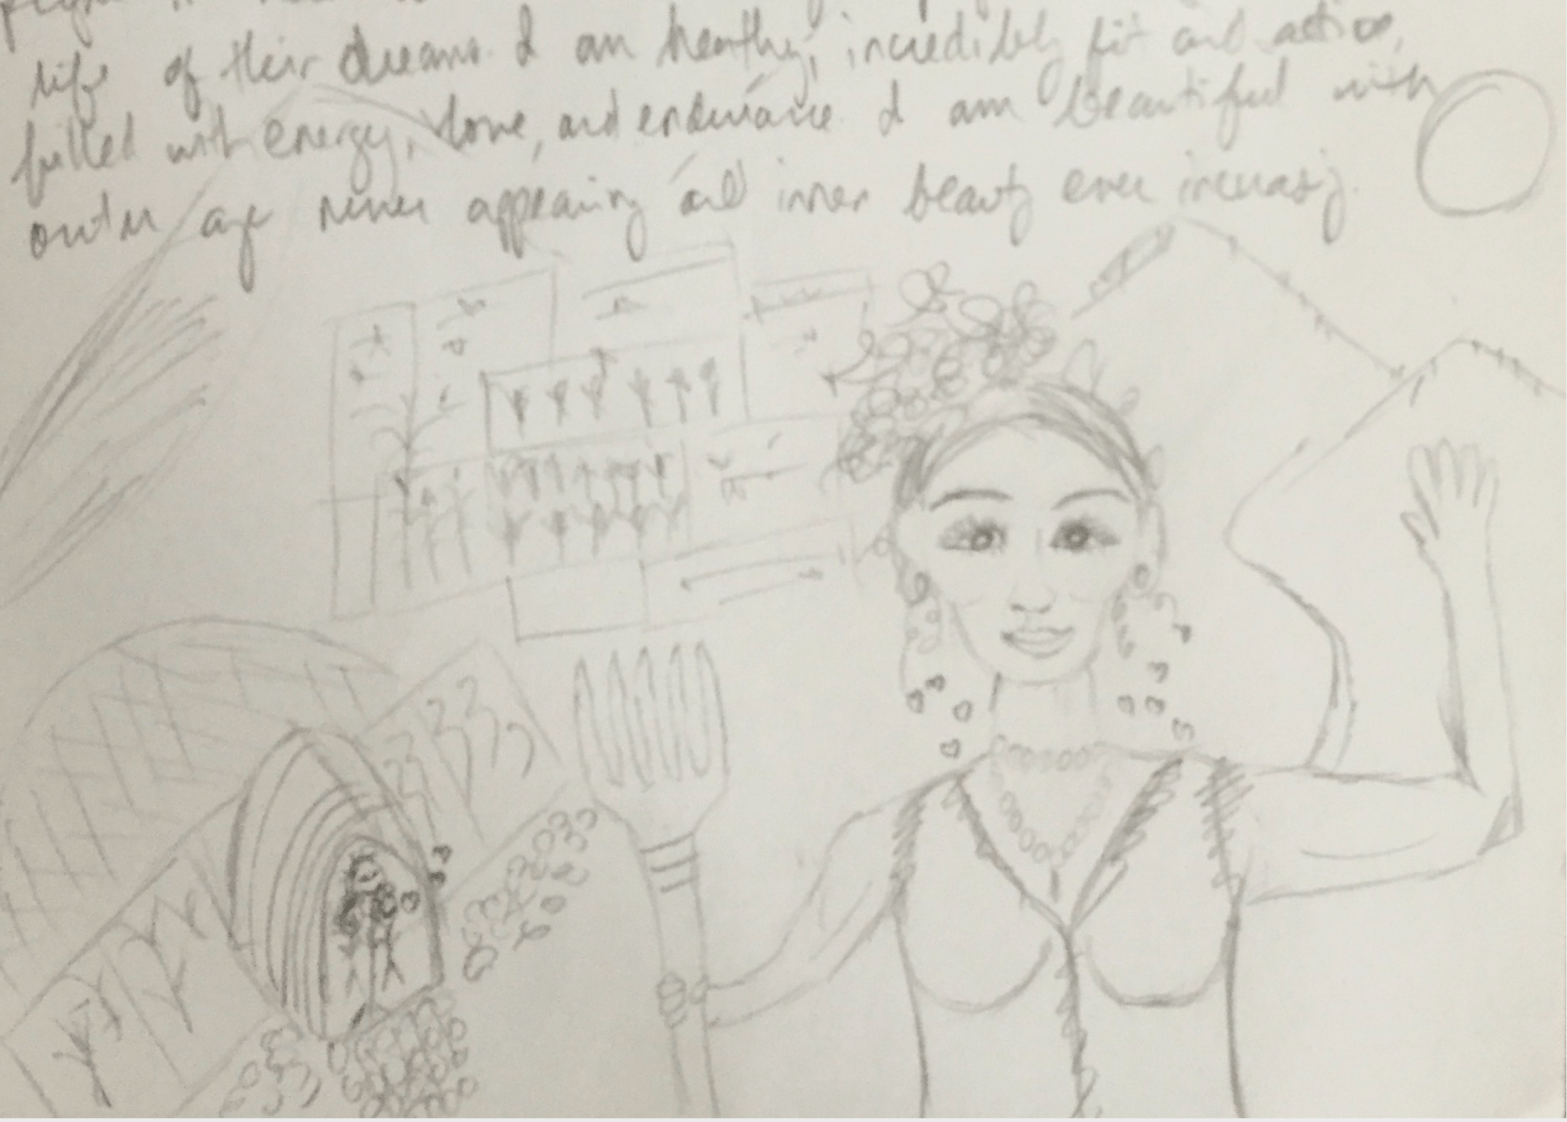 life of their dreams. I am healthy, incredibly fit and active,
filled with energy, love, and endurance. I am beautiful with
outer age never appearing and inner beauty ever increasing.